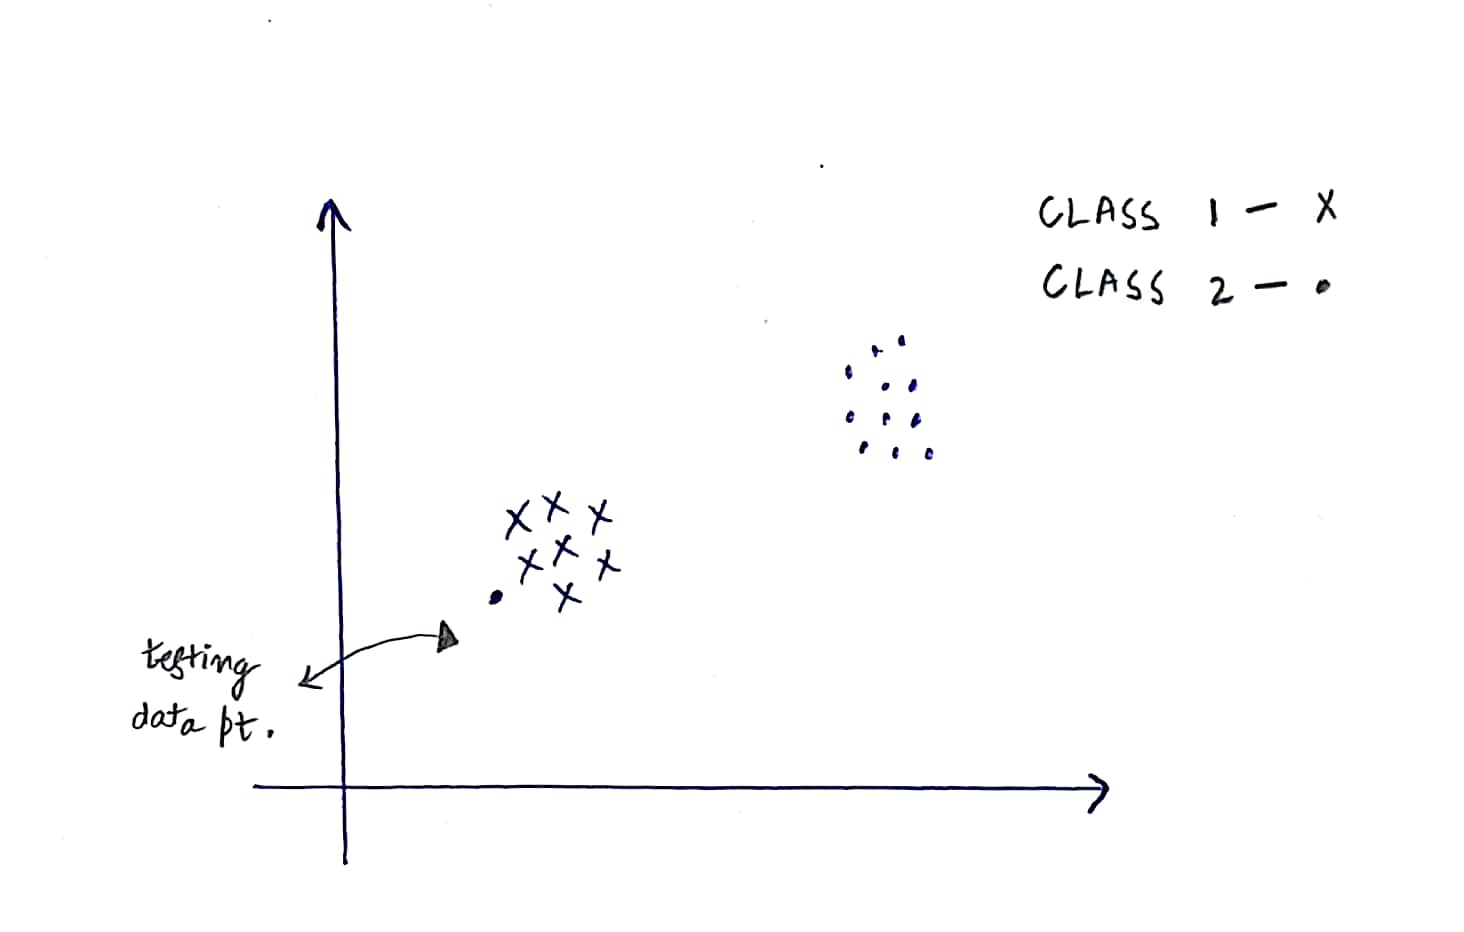 CLASS 1 - X
CLASS 2 - •
testing
data pt.